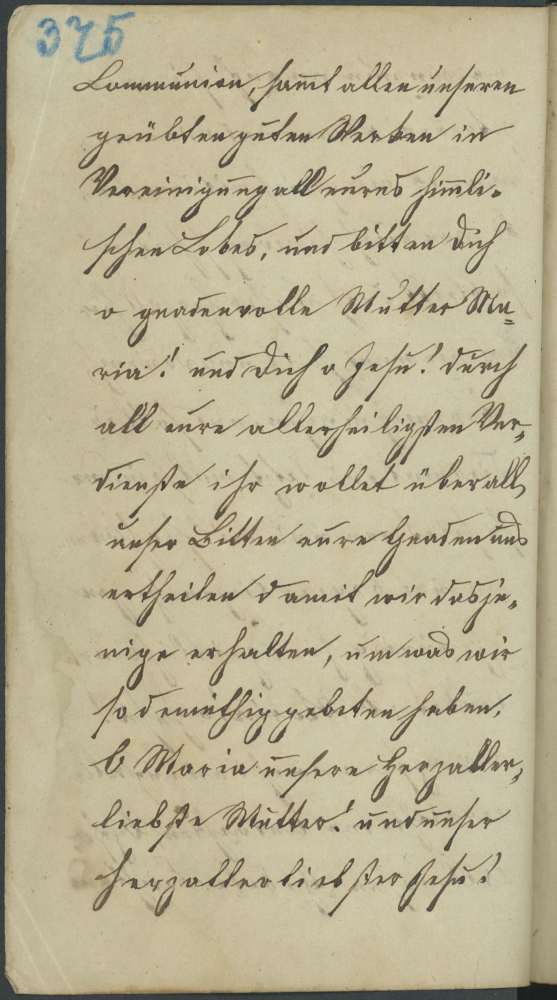 375
Communion, sam̄t allen unseren
geübten guten Werken in
Vereinigung all eures him̄li-
schen Lobes, und bitten dich
o gnadenvolle Mutter Ma=
ria! und dich o Jesu! durch
all eure allerheiligsten Ver-
dienste ihr wollet über all
unser Bitten eure Gnaden uns
ertheilen damit wir dasje-
nige erhalten, um was wir
so demüthig gebeten haben.
O Maria unsere Herzaller-
liebste Mutter! und unser
herzallerliebster Jesu!